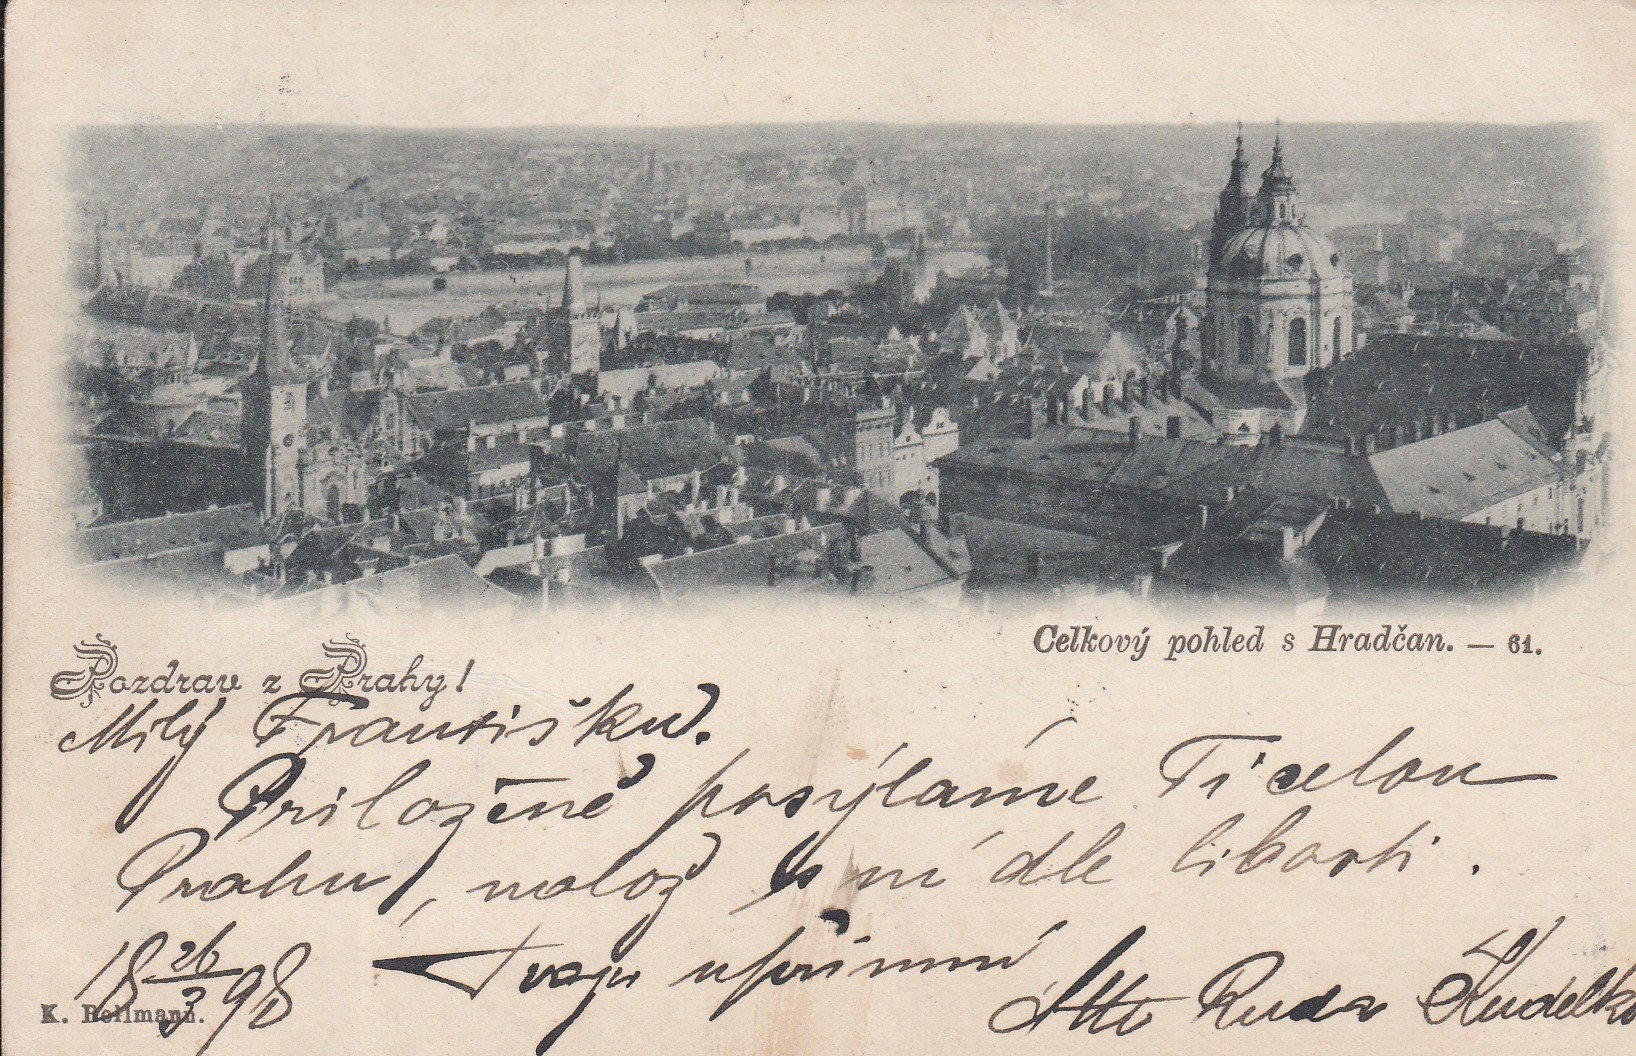 Celkový pohled s Hradčan. — 61.
Pozdrav z Prahy!
Milý Františku.
Přiloženě posýláme Ti celou
Prahu, nalož s ní dle libosti.
18 26/3 98 Tvoji upřímní
Otto Ruda Kudelka
K. Bellmann.